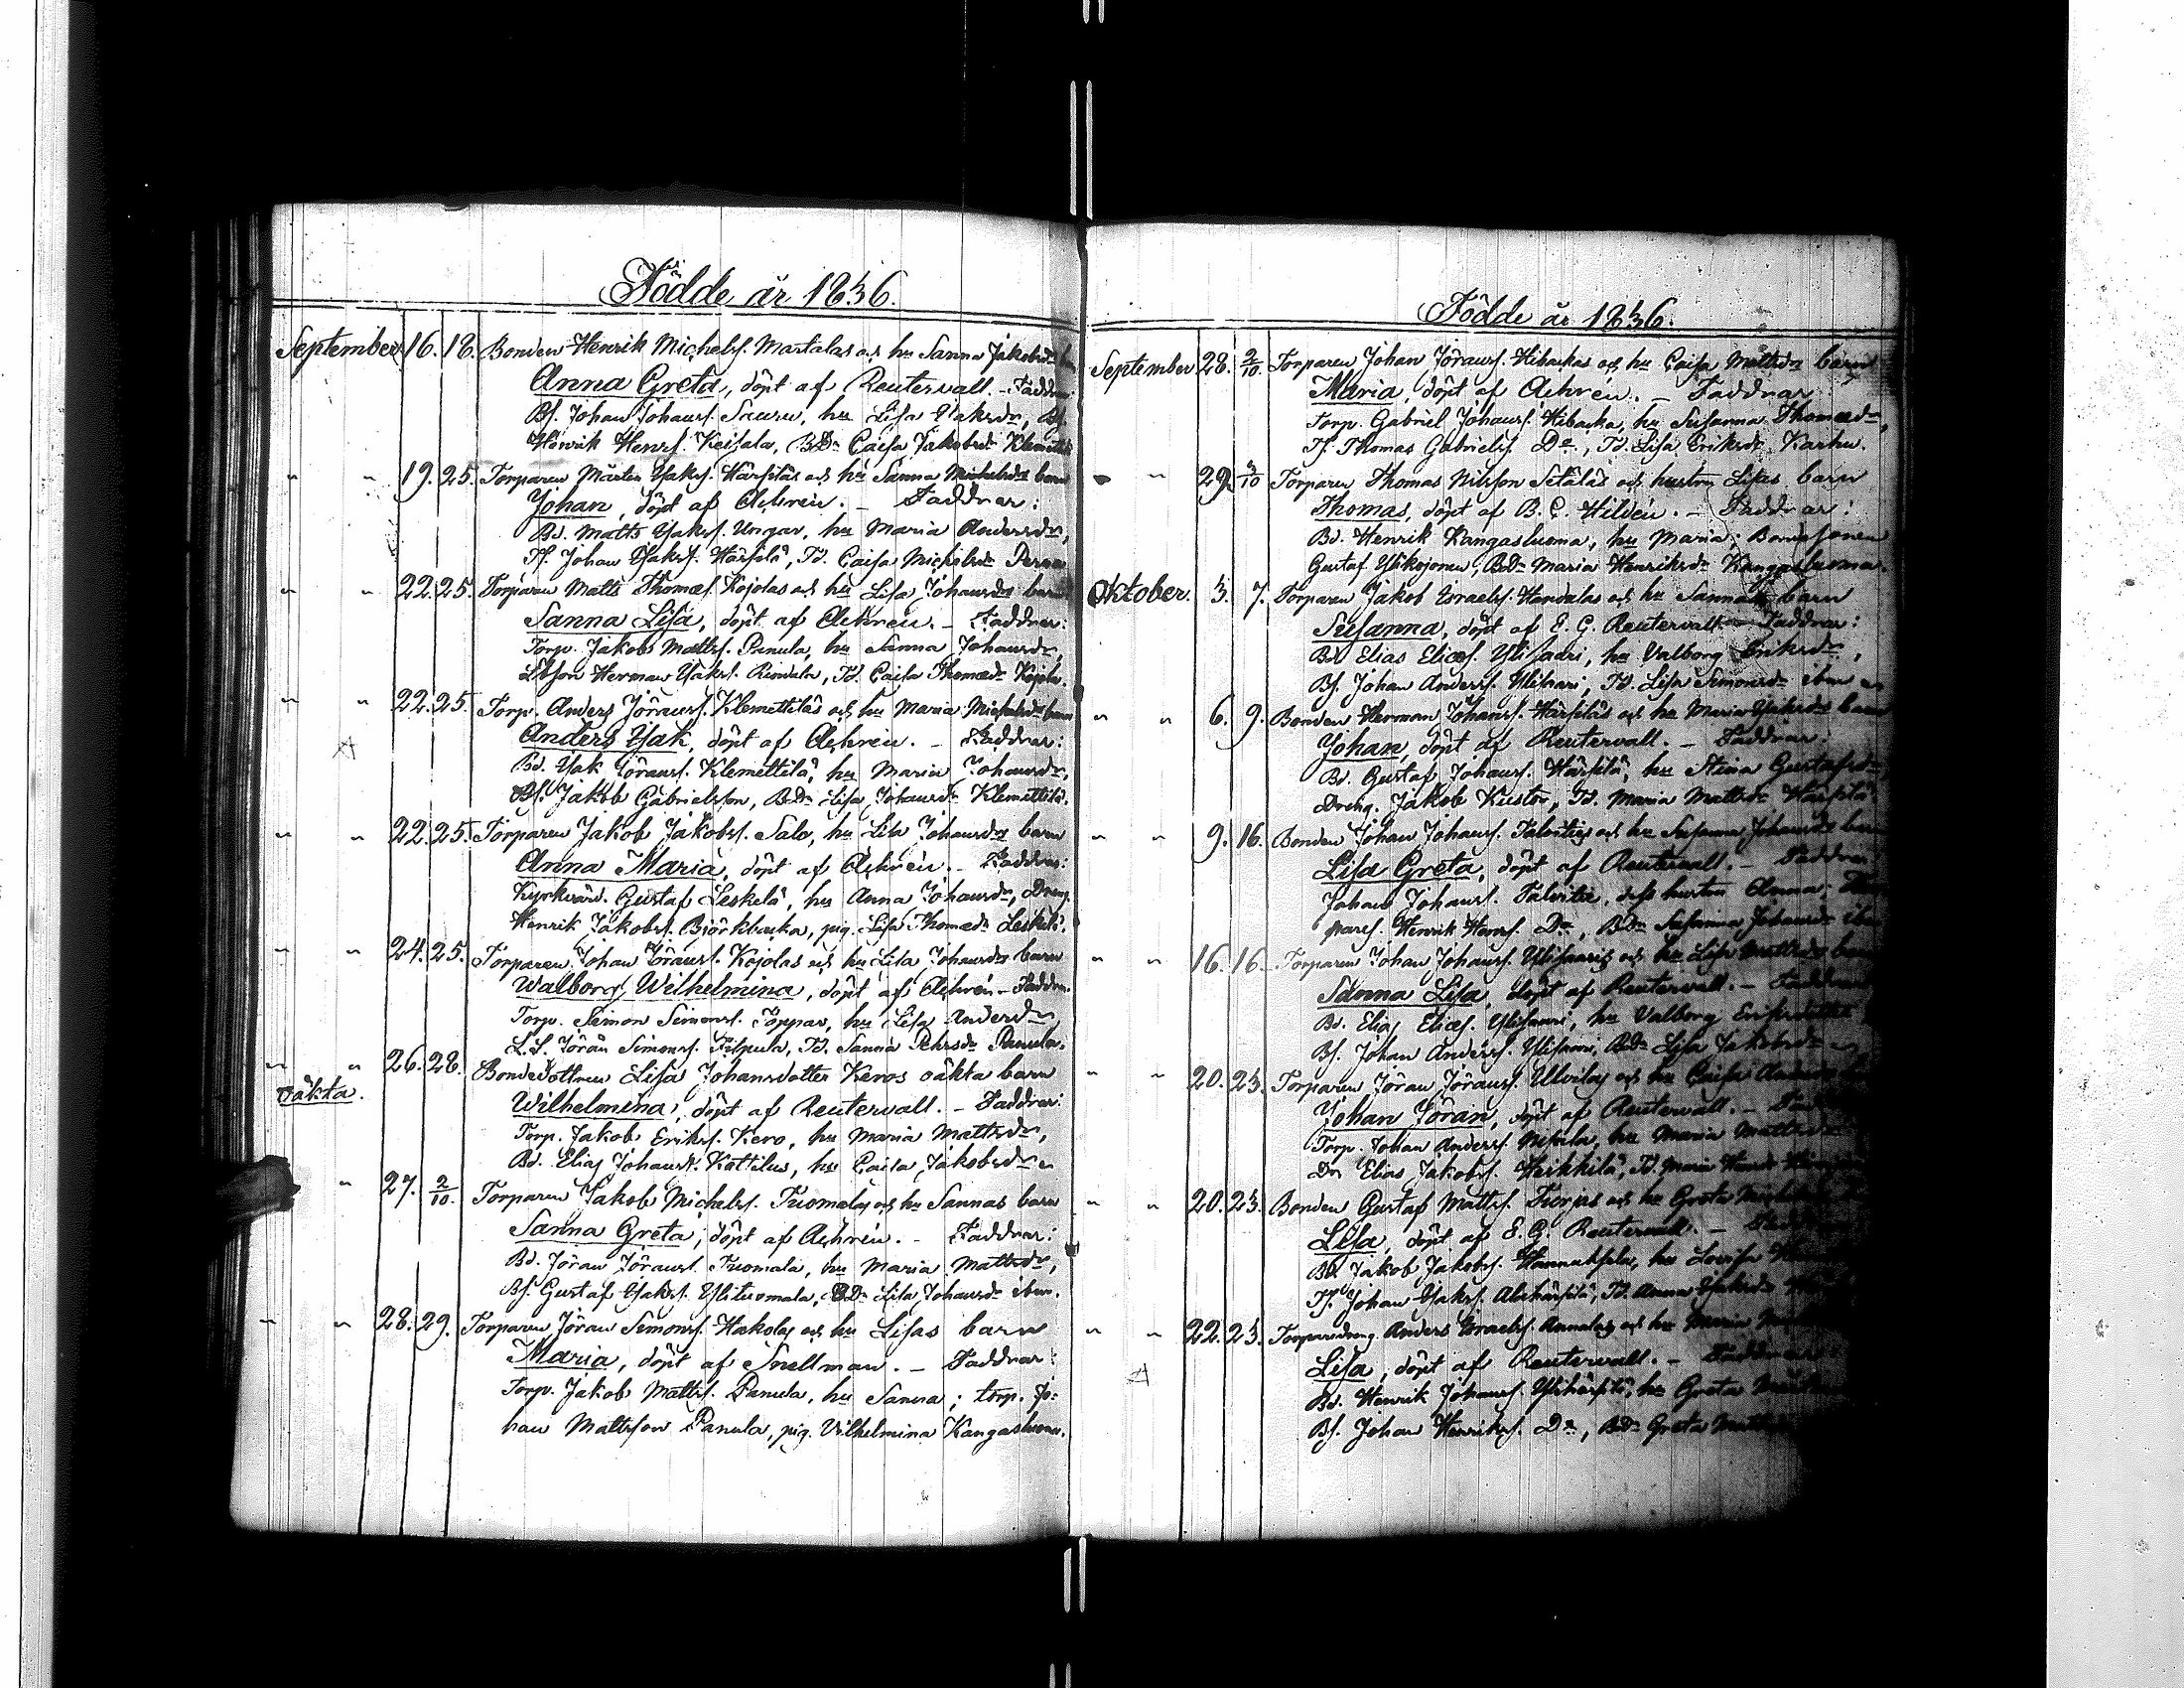 Födde år 1836.
September 16. 18. Bonden Henrik Michelss. Martalas och hu Sanna Jakobsdrs
Anna Greta, döpt af Reutervall. - Faddrar
Bs. Johan Johanss. Sauru, hu Lisa Isaksdr, Bs.
Henrik Henrss. Keisala, BDr Caisa Jakobsdr Klemettilä
" " 19. 25. Torparen Mårten Isakss. Härsiläs och hu Sanna Michelsdrs barn
Johan, döpt af Achrén. - Faddrar:
Bd. Matts Isakss. Ungar, hu Maria Andersdr,
Ts. Johan Isakss. Härsilä, Td. Caisa Michelsdr
" " 22. 25. Torparen Matts Thomæs. Kojolas och hu Lisa Johansdrs barn
Sanna Lisa, döpt af Achrén. - Faddrar:
Torp. Jakob Mattss. Panula, hu Sanna Johansdr,
Herman Isakss. Rindala, Td. Caisa Thomædr Kojola.
" " 22. 25. Torp. Anders Jöranss. Klemettiläs och hu Maria Michelsdrs barn
Anders Isak, döpt af Achrén. - Faddrar:
Bd. Isak Jöranss. Klemettilä, hu Maria Johansdr,
Bs. Jakob Gabrielsson, BDr Lisa Johansdr Klemettilä.
" " 22. 25. Torparen Jakob Jakobss. Salo, hu Lisa Johansdrs barn
Anna Maria, döpt af Achrén. - Faddrar:
Kyrkvärd. Gustaf Leskelä, hu Anna Johansdr, Dreng.
Henrik Jakobss. Björkbacka, pig. Lisa Thomædr Leskelä.
" " 24. 25. Torparen Johan Jöranss. Kojolas och hu Lisa Johansdrs barn
Walborg Wilhelmina, döpt af Achrén - Faddrar.
Torp. Simon Simonss. Joppas, hu Lisa Andersdr
L.S. Jöran Simonss. Filpula, Td. Sanna Pehrsdr Panula.
" " 26. 28. Bondedottren Lisa Johansdotter Keros oäkta barn
oäkta.
Wilhelmina, döpt af Reutervall. - Faddrar:
Torp. Jakob Erikss. Kero, hu Maria Mattsdr,
Bd. Elias Johanss. Kattilus, hu Caisa Jakobsdr
" 27. 2/10. Torparen Jakob Michelss. Tuomalas och hu Sannas barn
Sanna Greta, döpt af Achrén. - Faddrar:
Bd. Jöran Jöranss. Tuomala, hu Maria Mattsdr,
Bs. Gustaf Isakss. Ylituomala, BDr Lisa Johansdr ibm.
" " 28. 29. Torparen Jöran Simonss. Hakolas och hu Lisas barn
Maria, döpt af Snellman. - Faddrar:
Torp. Jakob Mattss. Panula, hu Sanna; torp. Jo-
han Mattsson Panula, pig. Vilhelmina Kangasluoma.
Födde år 1836.
September 28. 2/10. Torparen Johan Jöranss. Hibackas och hu Caisa Mattsdrs barn
Maria, döpt af Achrén. - Faddrar
Torp. Gabriel Johanss. Hibacka, hu Susanna Thomædr,
Ts. Thomas Gabrielss. Do, Td. Lisa Eriksdr Karhu.
" 29. 3/10 Torparen Thomas Nilsson Setäläs och hustru Lisas barn
Thomas, döpt af B. C. Hildén. - Faddrar:
Bd. Henrik Kangasluoma, hu Maria; Bondesonen
Gustaf Ylikojonen, BDr Maria Henriksdr Kangasluoma.
Oktober. 3. 7. Torparen Jakob Israelss. Handalas och hu Sannas barn
Susanna, döpt af E. G. Reutervall - Faddrar:
Bd. Elias Eliæs. Ylisaari, hu Valborg Eriksdr,
Bs. Johan Anderss. Ylisaari, Td. Lisa Simonsdr ibm
" " 6. 9. Bonden Herman Johanss. Härsiläs och hu Maria Isaksdrs barn
Johan, döpt af Reutervall. - Faddrar
Bd. Gustaf Johanss. Härsilä, hu Stina Gustafsdr,
Dreng. Jakob Kustor, Td. Maria Mattsdr Härsilä.
" " 9. 16. Bonden Johan Johanss. Talvities och hu Susanna Johansdrs barn
Lisa Greta, döpt af Reutervall. - Faddrar
Johan Johanss. Talvitie, dess hustru Anna;
pares. Henrik Henrss. Do, BDr Susanna Johansdr ibm
" " 16. 16. Torparen Johan Johanss. Ylisaaris och hu Lisa Mattsdrs barn
Sanna Lisa, döpt af Reutervall. - Faddrar
Bd. Elias Eliæs. Ylisaari, hu Valborg Eriksdotter
Bs. Johan Anderss. Ylisaari, BDr Lisa Jakobsdr
" " 20. 23. Torparen Jöran Jöranss. Ulvilas och hu Caisa
Johan Jöran, döpt af Reutervall. -
Torp. Johan Anderss. hu Maria Mattsdr
Dr Elias Jakobss. Heikkilä, Td. Maria
" " 20. 23. Bonden Gustaf Mattss. och hu Greta
Lisa, döpt af E. G. Reutervall. -
Bd. Jakob Jakobss. Hannuksela, hu Lovisa
Ts. Johan Isakss. Alahärsilä, Td. Anna Isaksdr
" " 22. 23. Torparedreng Anders Israelss. och hu Maria
Lisa, döpt af Reutervall. - Faddrar
Bd. Henrik Johanss. Ylihärsilä, hu Greta
Bs. Johan Henrikss. Do, BDr Greta